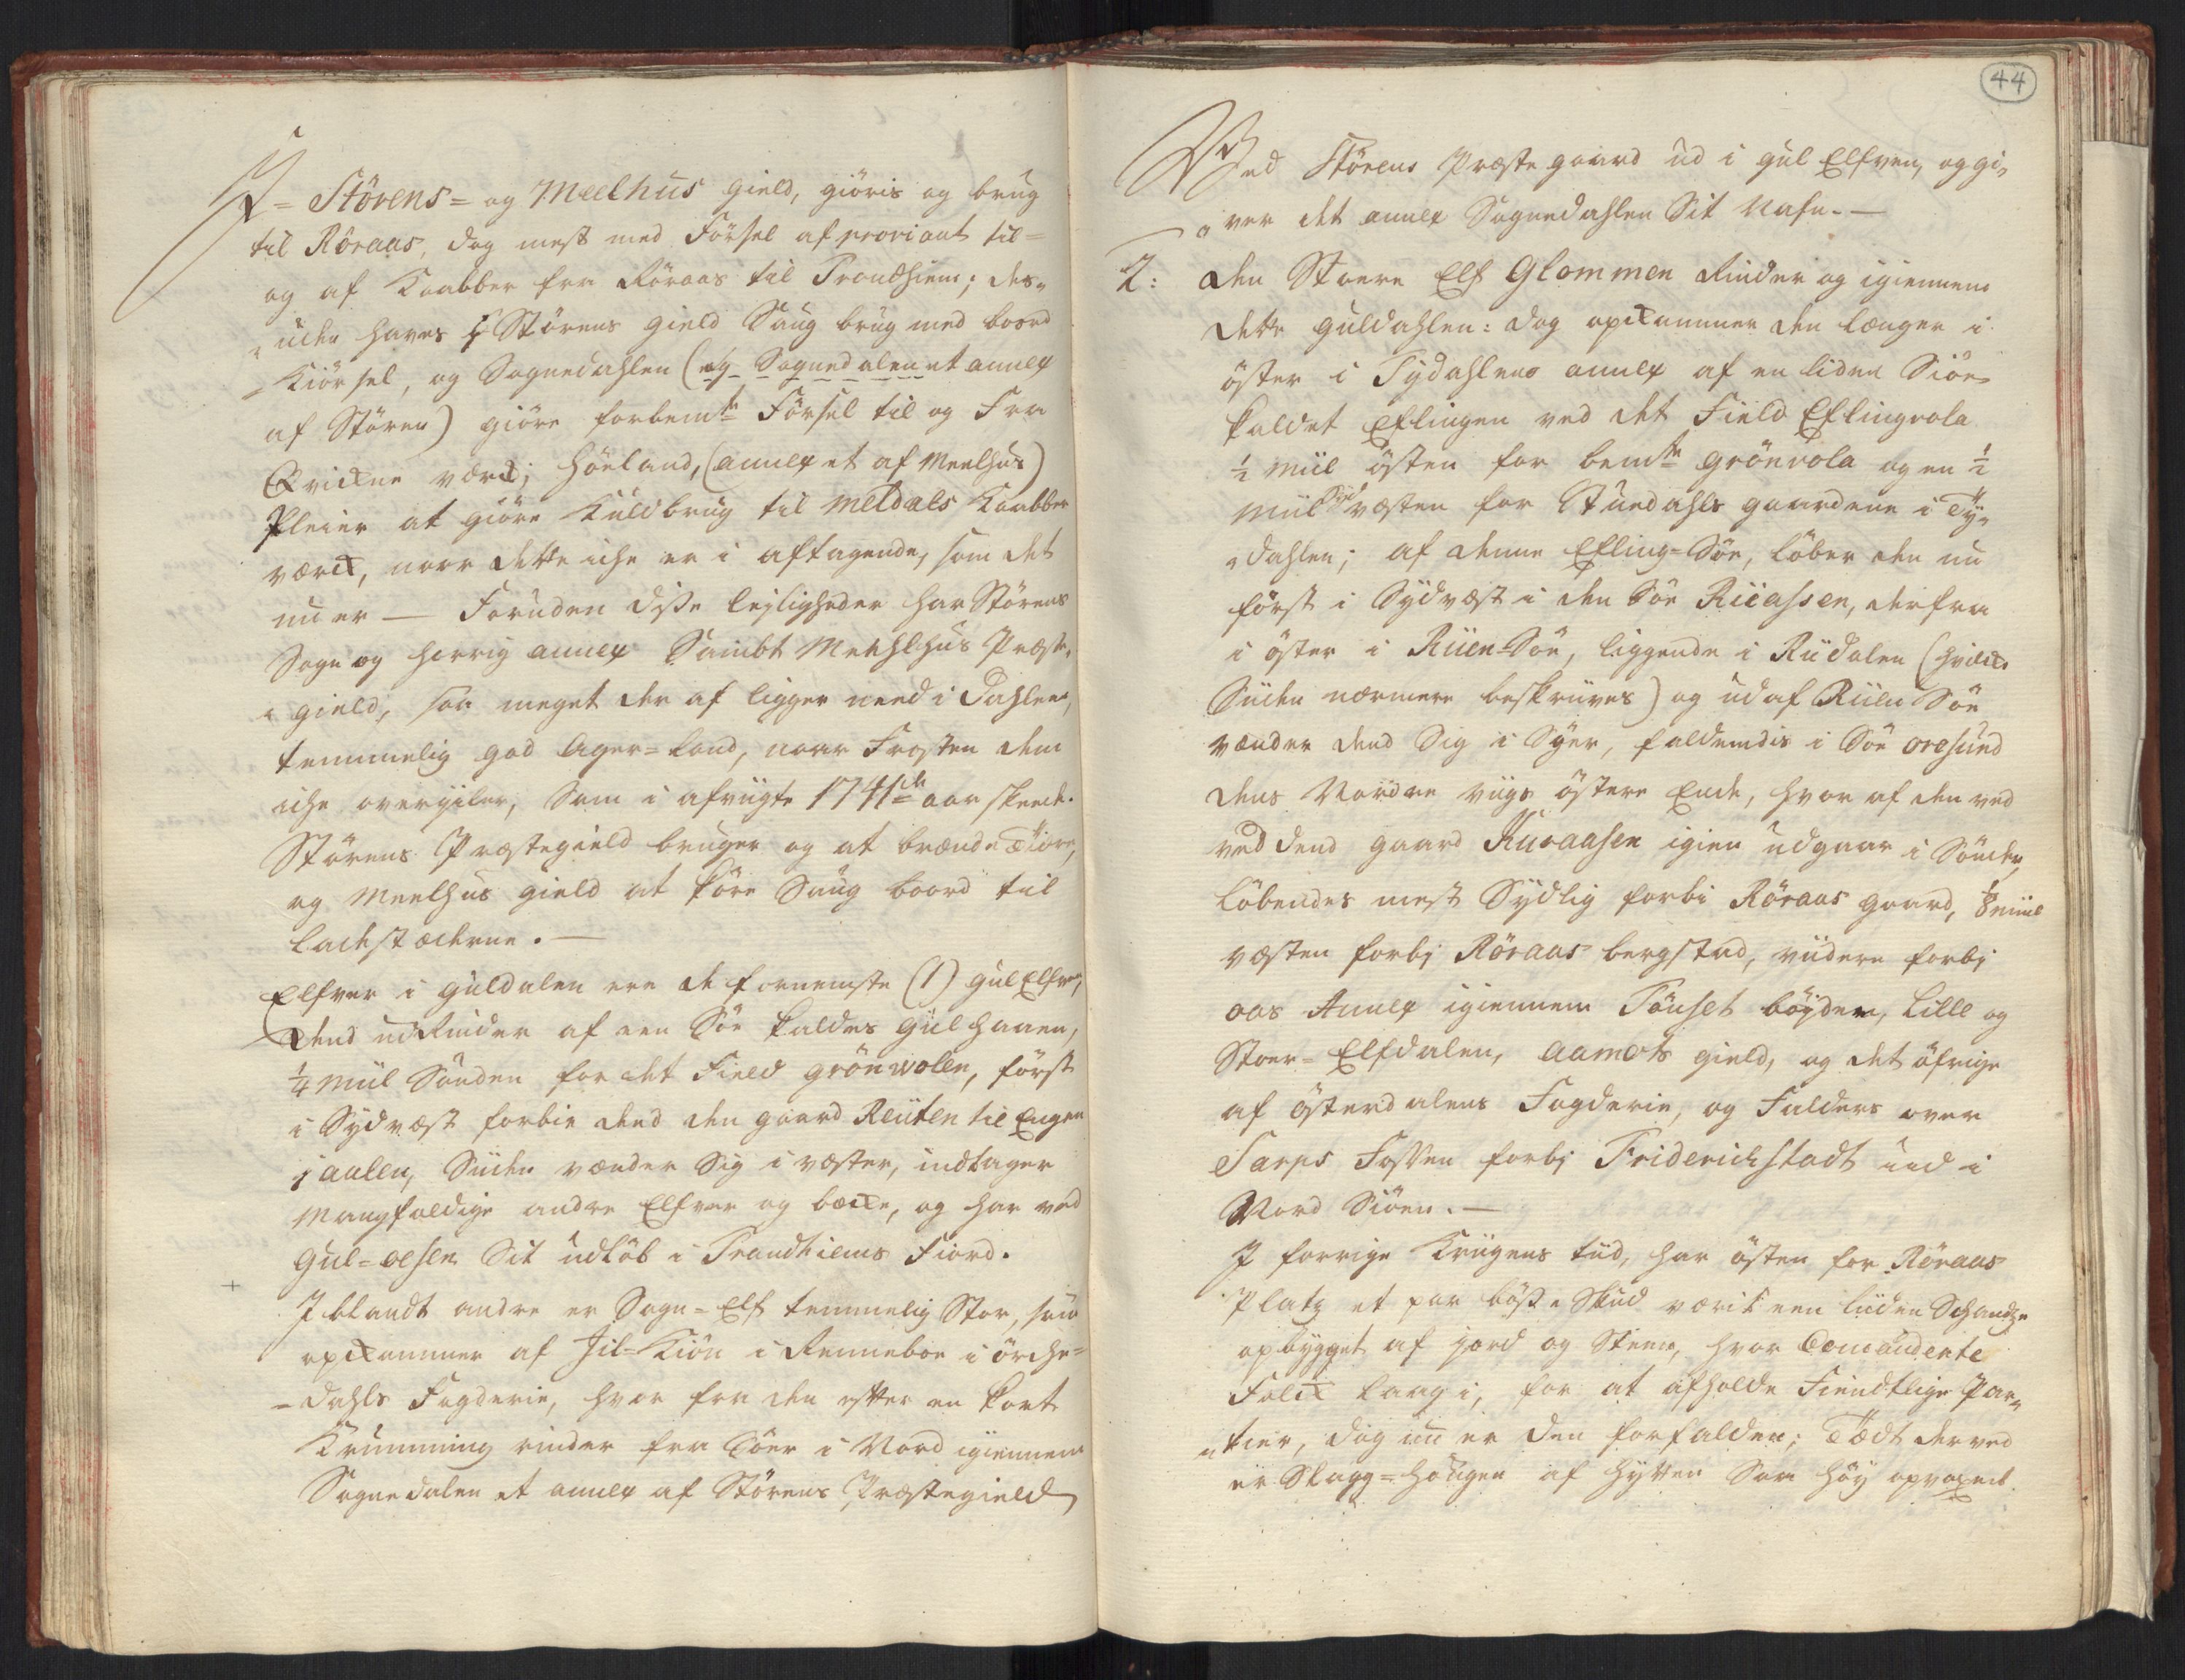 I = Störens = og Meelhus gield, giöris og brug
til Röraas, dog mest med Förssel af proviant til =
og af Kaabber fra Röraas til Trondhiem; des„
„uden haves i Störens gield Saug brug med boord
Kiörsel, og Sognedahlen (og Sognedalen et annex
af Stören) giöre forbemte Förssel til og Fra
Qvickne værck; Höeland, (annex et af Meelhus)
Pleier at giöre Kulbrug til Meldals Kaabber
værck, naar dette iche er i aftagende, som det
nu er — Foruden disse lejligheder har Störens
Sogn og herrig annex Sambt Meehlhus Præste„
„gield, saa meget der af ligger need i Dahlen,
temmelig god Ager=land, naar Frosten dem
iche overgiler, Som i afvigte 1741de aar skeede.
Störens Præstegield bruger og at brænde Tiöre,
og Meelhus gield at köre Saug boord til
ladestæderne. —
Elfver i Guldalen ere de fornemste (1) Gul Elfven,
Dend ud Rinder af een Söe kaldes Gulhaaen,
1/4 Miil Sönden for det Field Grönwolen, först
i Sydvæst forbie dend den gaard Reiiten til Engen
i Aalen, Siiden vænder Sig i væster, indtager
Mangfoldige andre Elfver og bæcke, og har ved
Gul=oesen Sit udlöb i Trondhiems Fiord.
+
Iblandt andre er Sogn=Elf temmelig Stor, som
opckommer af Jil=Kiön i Renneboe i örche=
=dahls Fogderie, hvor fra den efter en kort
Krumming rinder fra Söer i Nord igiennem
Sognedalen et annex af Störens Præstegield
44
Ved Störens Præstegaard ud i Gul Elfven, og gi„
„ver det annex Sognedahlen Sit Nafn. —
2: Den Stoere Elf Glommen Rinder og igiennem
dette Guldahlen: dog opckommer den længer i
öster i Tydahlens annex af en liden Siöe
kaldet Eflingen ved det Field Eflingvola
1/2 Miil östen for bemte Grönvola og en 1/2
Miil Syd væsten for Stuedahls gaardene i Ty„
„dahlen; af denne Efling=Söe, löber den nu
först i Sydvæst i den Söe Riiassen, derfra
i öster i Riien=Söe, liggende i Riidalen (hvilcke
Siiden nærmere beskriives) og ud af Riien Söe
vænder dend Sig i Syer, faldendis i Söe Oresund
dens Nordre viigs östere Ende, hvor af den ved
ved dend gaard Kuraasen igien udgaar i Sönder,
löbendes mest Sydlig forbi Röraas gaard, 1/8 miil
væsten forbj Röraas bergstad, viidere forbj
Oos Annex igiennem Tönset böyden, Lille og
Stoer=Elfdalen, Aamots gield, og det öfrige
af Österdalens Fogderie, og Falders over
Sarps Fossen forbj Friderichstadt ud i
Nord Siöen. —
I forrige Kriigens tiid, har östen for Röraas
Platz et par bösse Skud værit een liiden Schandse
opbygget af jord og Steen, hvor Comanderte
Folck laag i, for at afholde Fiendtlige Par„
„tier, dog nu er den forfalden; Tædt derved
er Slagg=Hougen af Hytten Saa höy opvoxed.